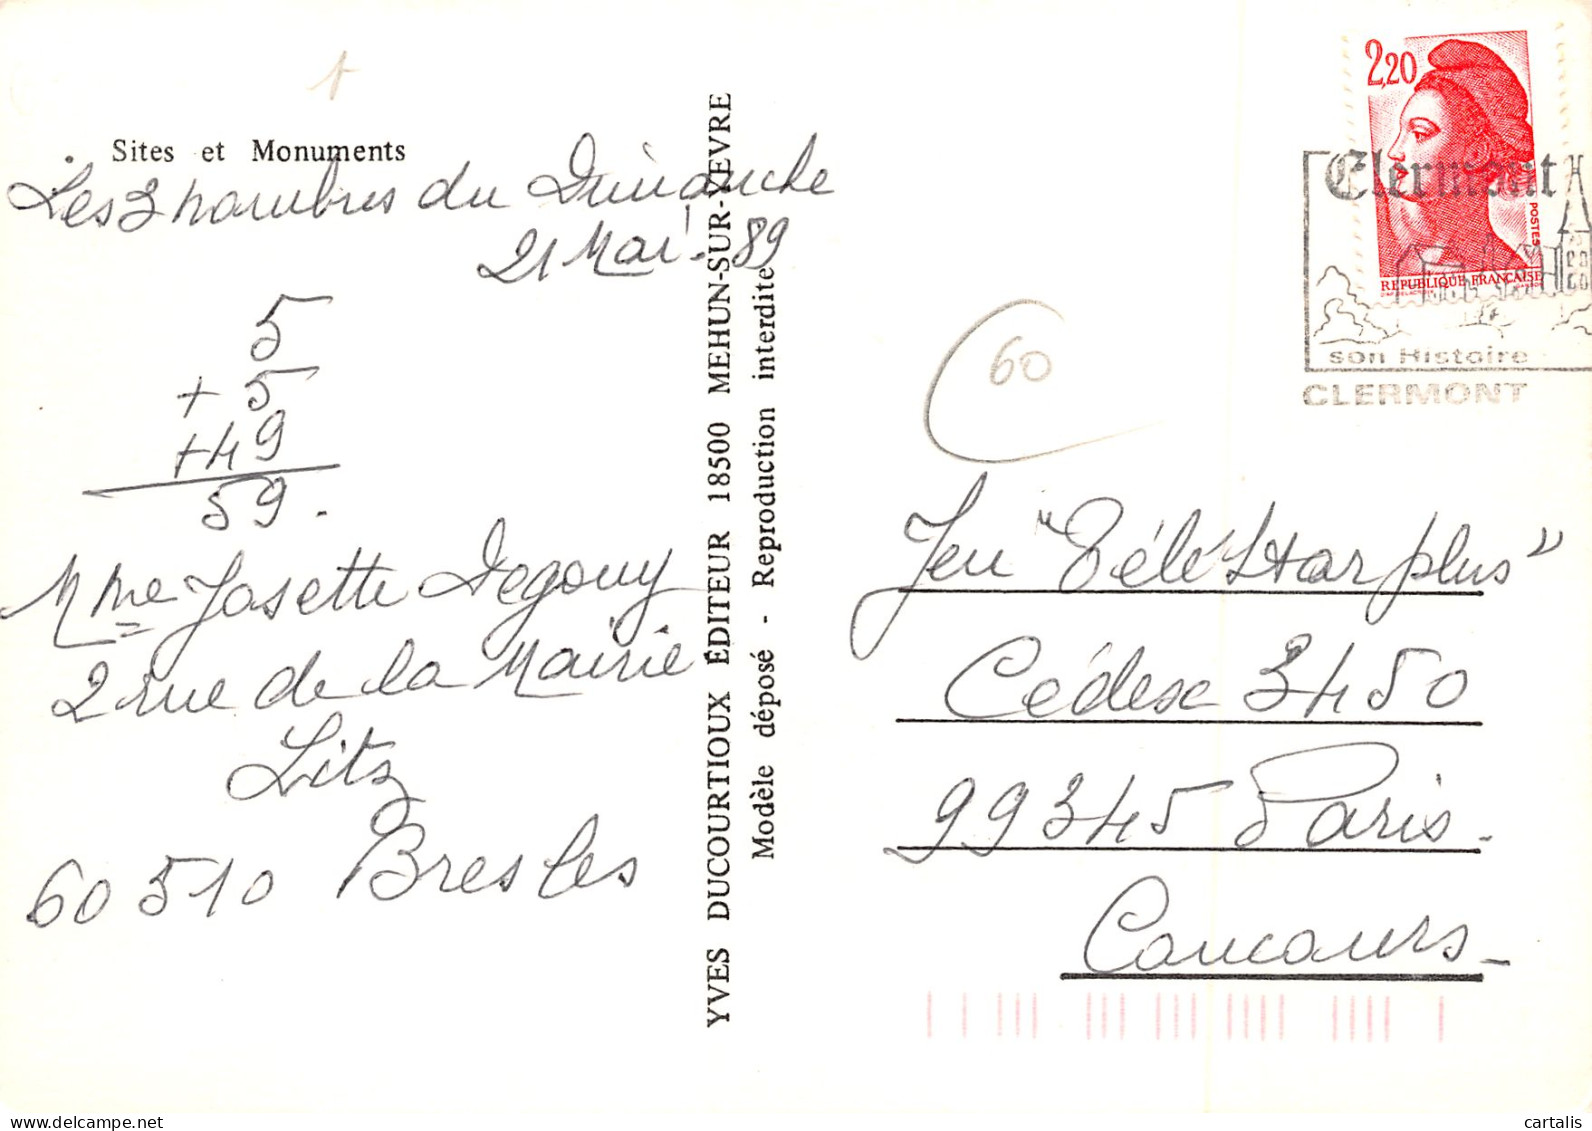 Sites et Monuments
Les 3 nombres du Dimanche
21 Mai 89
5
+ 5
+ 49
59.
Mme Josette Degouy
2 rue de la Mairie
Litz
60510 Bresles
YVES DUCOURTIOUX ÉDITEUR 18500 MEHUN-SUR-YEVRE
Modèle déposé - Reproduction interdite
2,20
POSTES
REPUBLIQUE FRANÇAISE
Clermont
son Histoire
CLERMONT
60
Jeu "Télé Star plus"
Cédex 3450
99345 Paris.
Concours
delcampe.net
cartalis